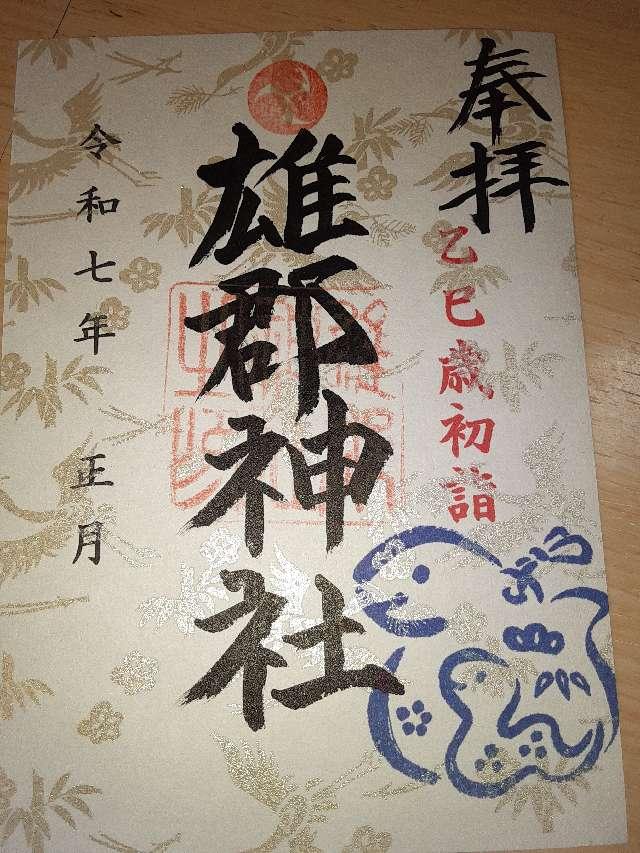 奉拝
乙巳歳初詣
雄郡神社
令和七年 正月